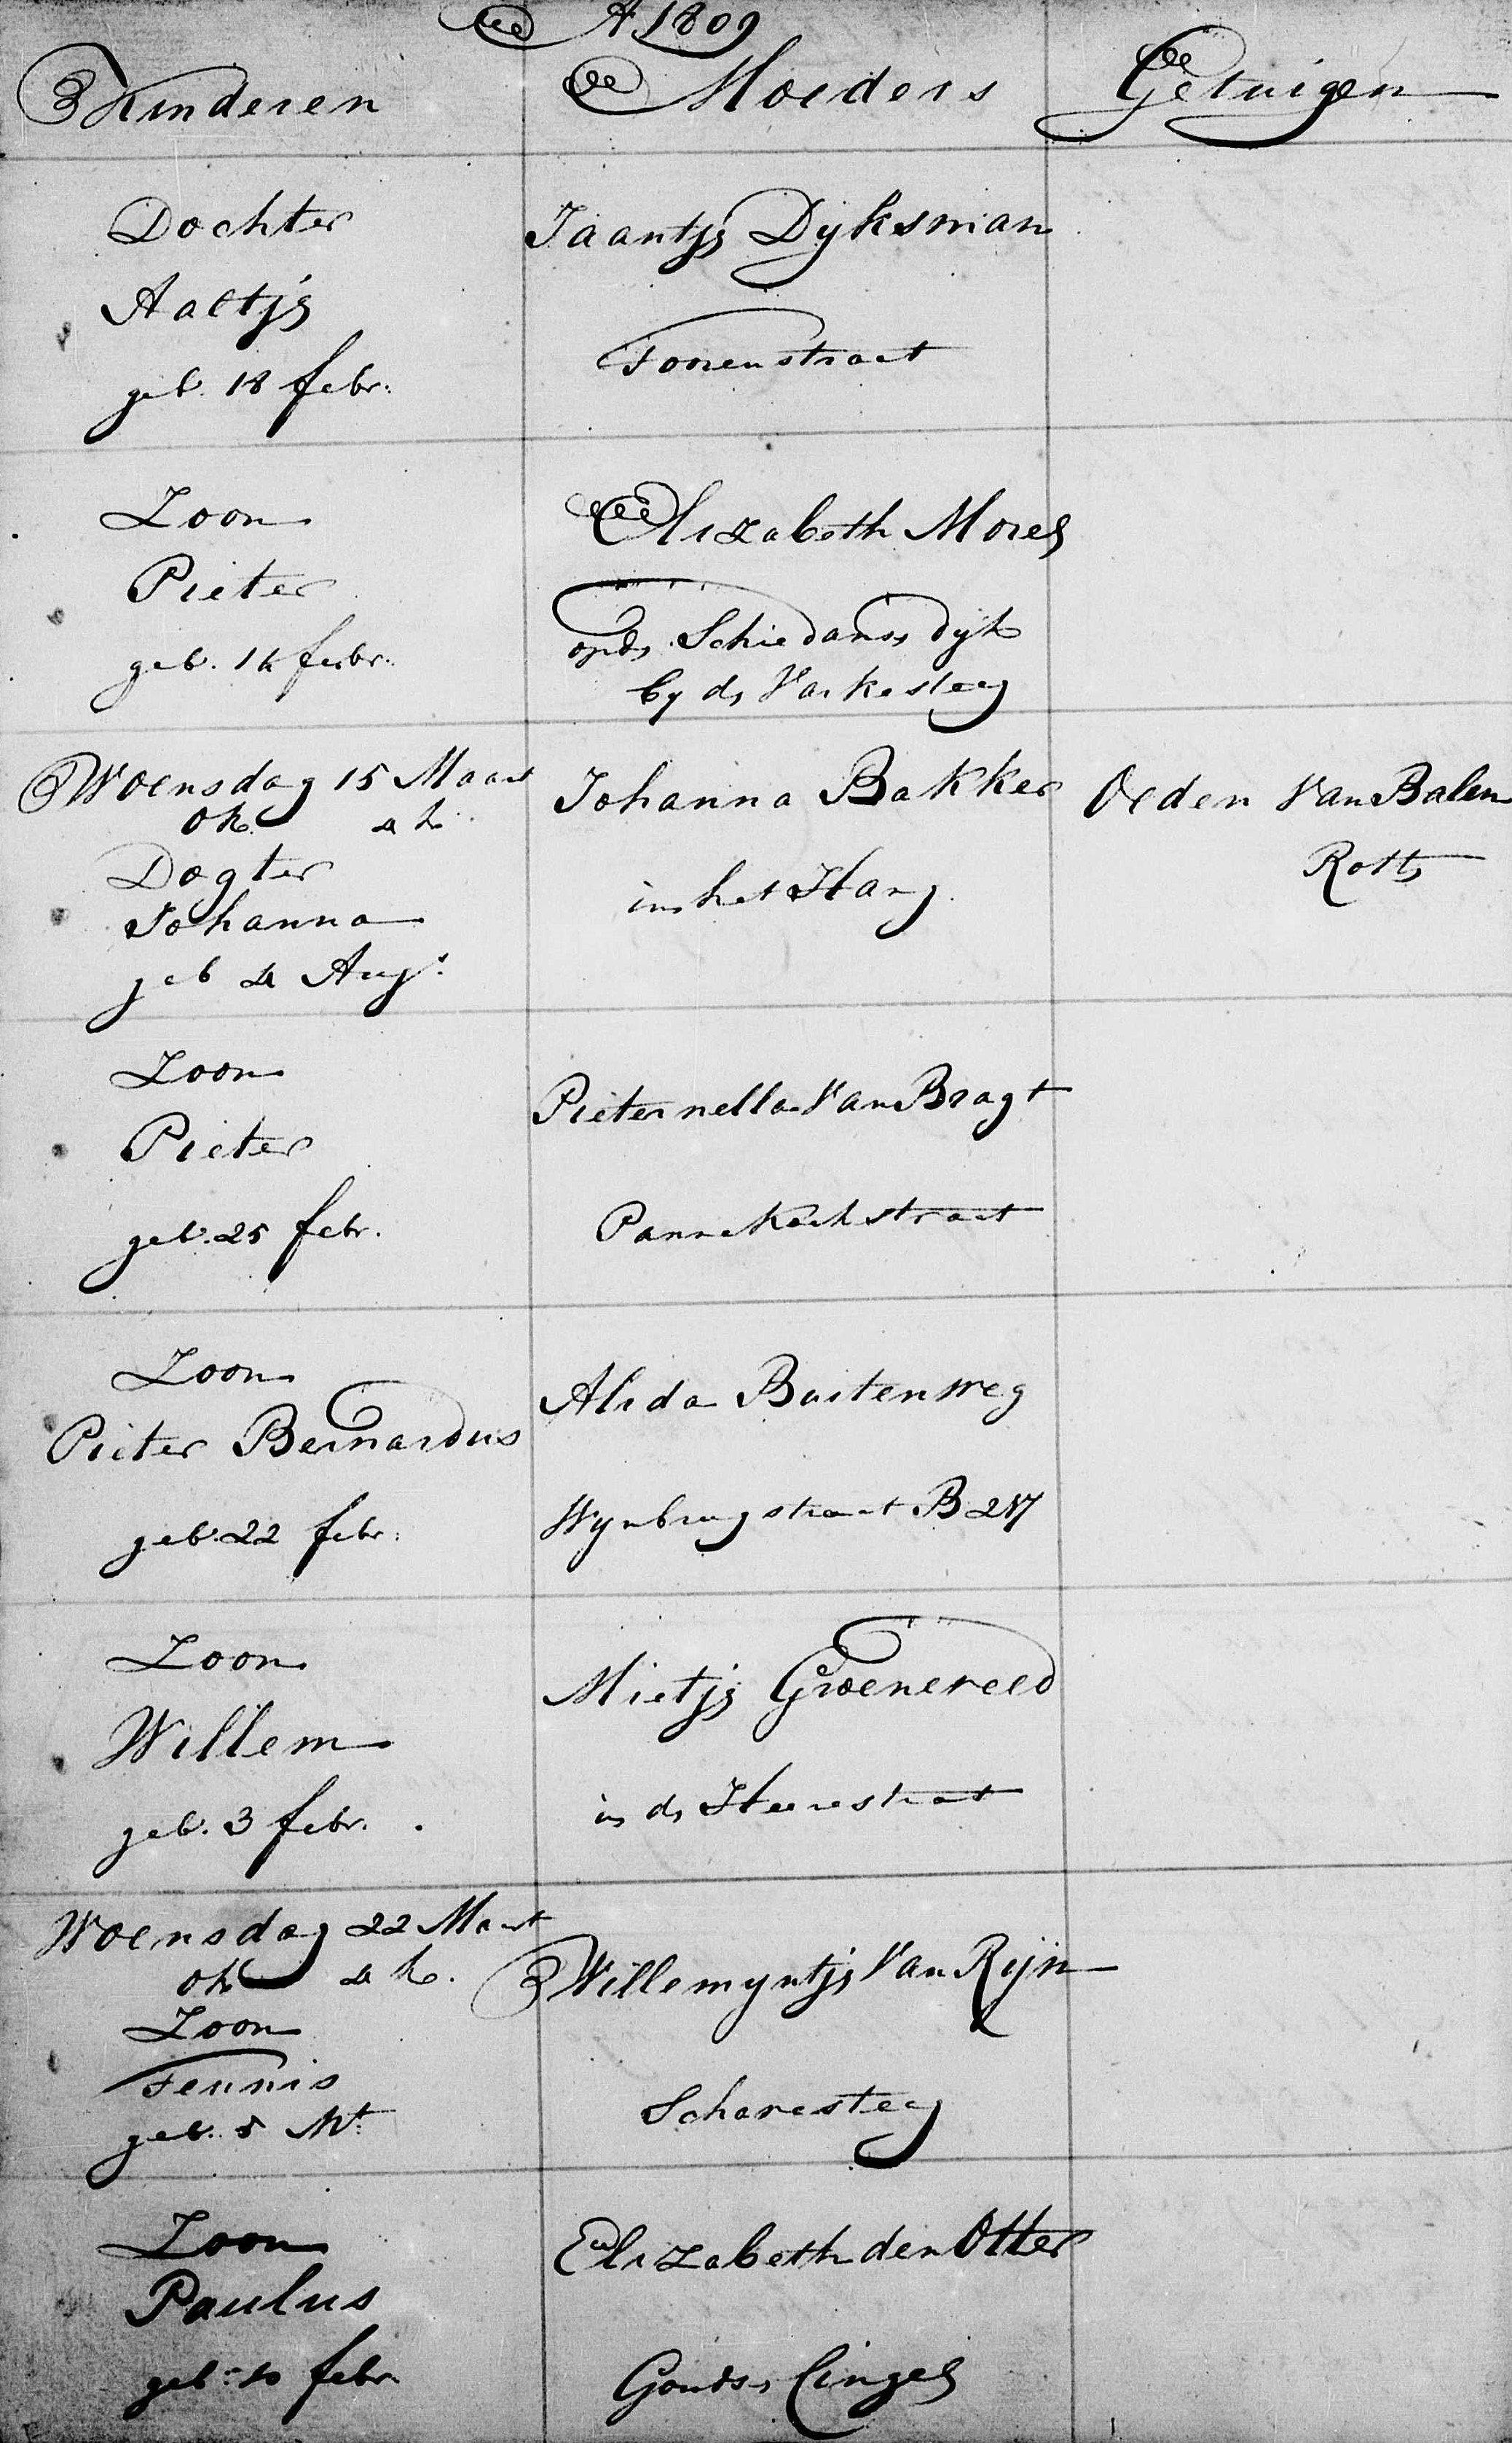 A 1809
Kinderen
Moeders
Getuigen
Dochter
Aaltje
geb. 18 febr:
Jaantje Dyksman
Torenstraat
Zoon
Pieter
geb. 14 febr:
Elizabeth Morel
op de Schiedamse dijk
by de Varkesteeg
Woensdag 15 Maart
OK 4 h
Dogter
Johanna
geb 4 Aug:
Johanna Bakker
in het Hang
Oeden Van Balen
Rotts
Zoon
Pieter
geb. 25 febr.
Pieternella Van Bragt
Pannekoekstraat
Zoon
Pieter Bernardus
geb. 22 febr:
Alida Buitenweg
Wynbrugstraat B 217
Zoon
Willem
geb. 3 febr.
Mietje Groenereed
in de Heerestraat
Woensdag 22 Maart
OK 4 h.
Zoon
Teunis
geb. 8 Mt
Willemyntje Van Rijn
Scharesteeg
Zoon
Paulus
geb. 10 febr
Elizabeth den Otter
Goudse Cingel